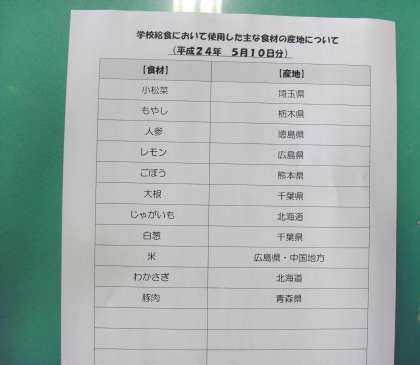 学校給食において使用した主な食材の産地について
（平成２４年　５月１０日分）
【食材】　【産地】
小松菜　埼玉県
もやし　栃木県
人参　徳島県
レモン　広島県
ごぼう　熊本県
大根　千葉県
じゃがいも　北海道
白葱　千葉県
米　広島県・中国地方
わかさぎ　北海道
豚肉　青森県